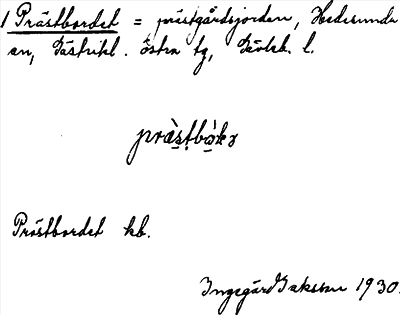 1 Prästbordet = prästgårdsjorden, Hedesunda
sn, Gästrikl. östra tg, Gävleb. l.
præ̀stbò̱kə
Prästbordet kb.
Ingegärd Isaksson 1930.